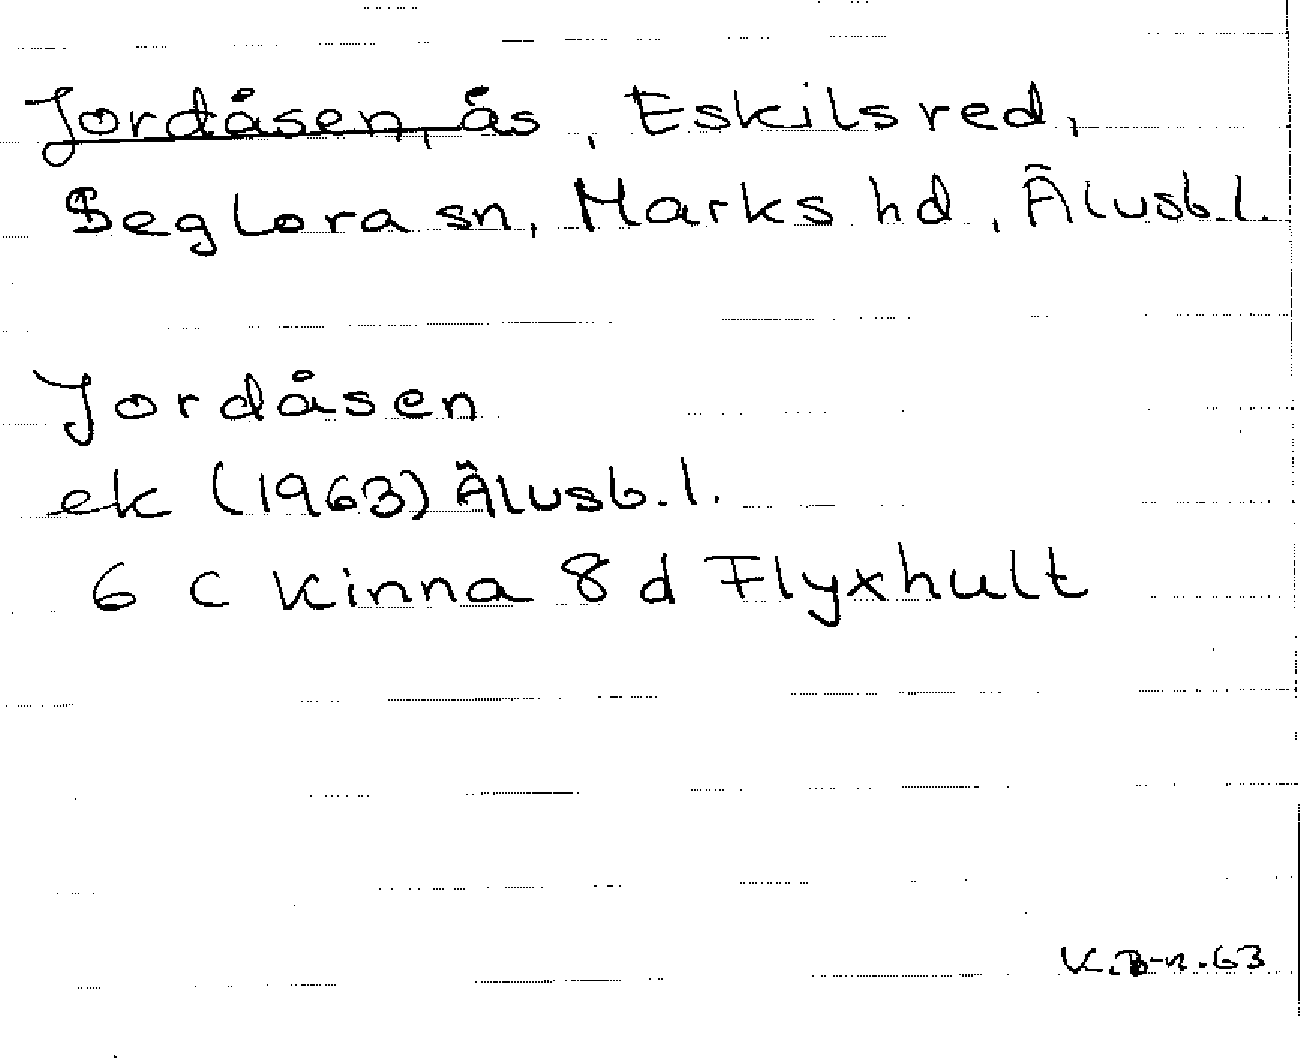 Jordåsen, ås, Eskilsred,
Seglora sn, Marks hd, Älvsb.l.
Jordåsen
ek (1963) Älvsb.l.
6 C Kinna 8 d Flyxhult
K.B-n.63